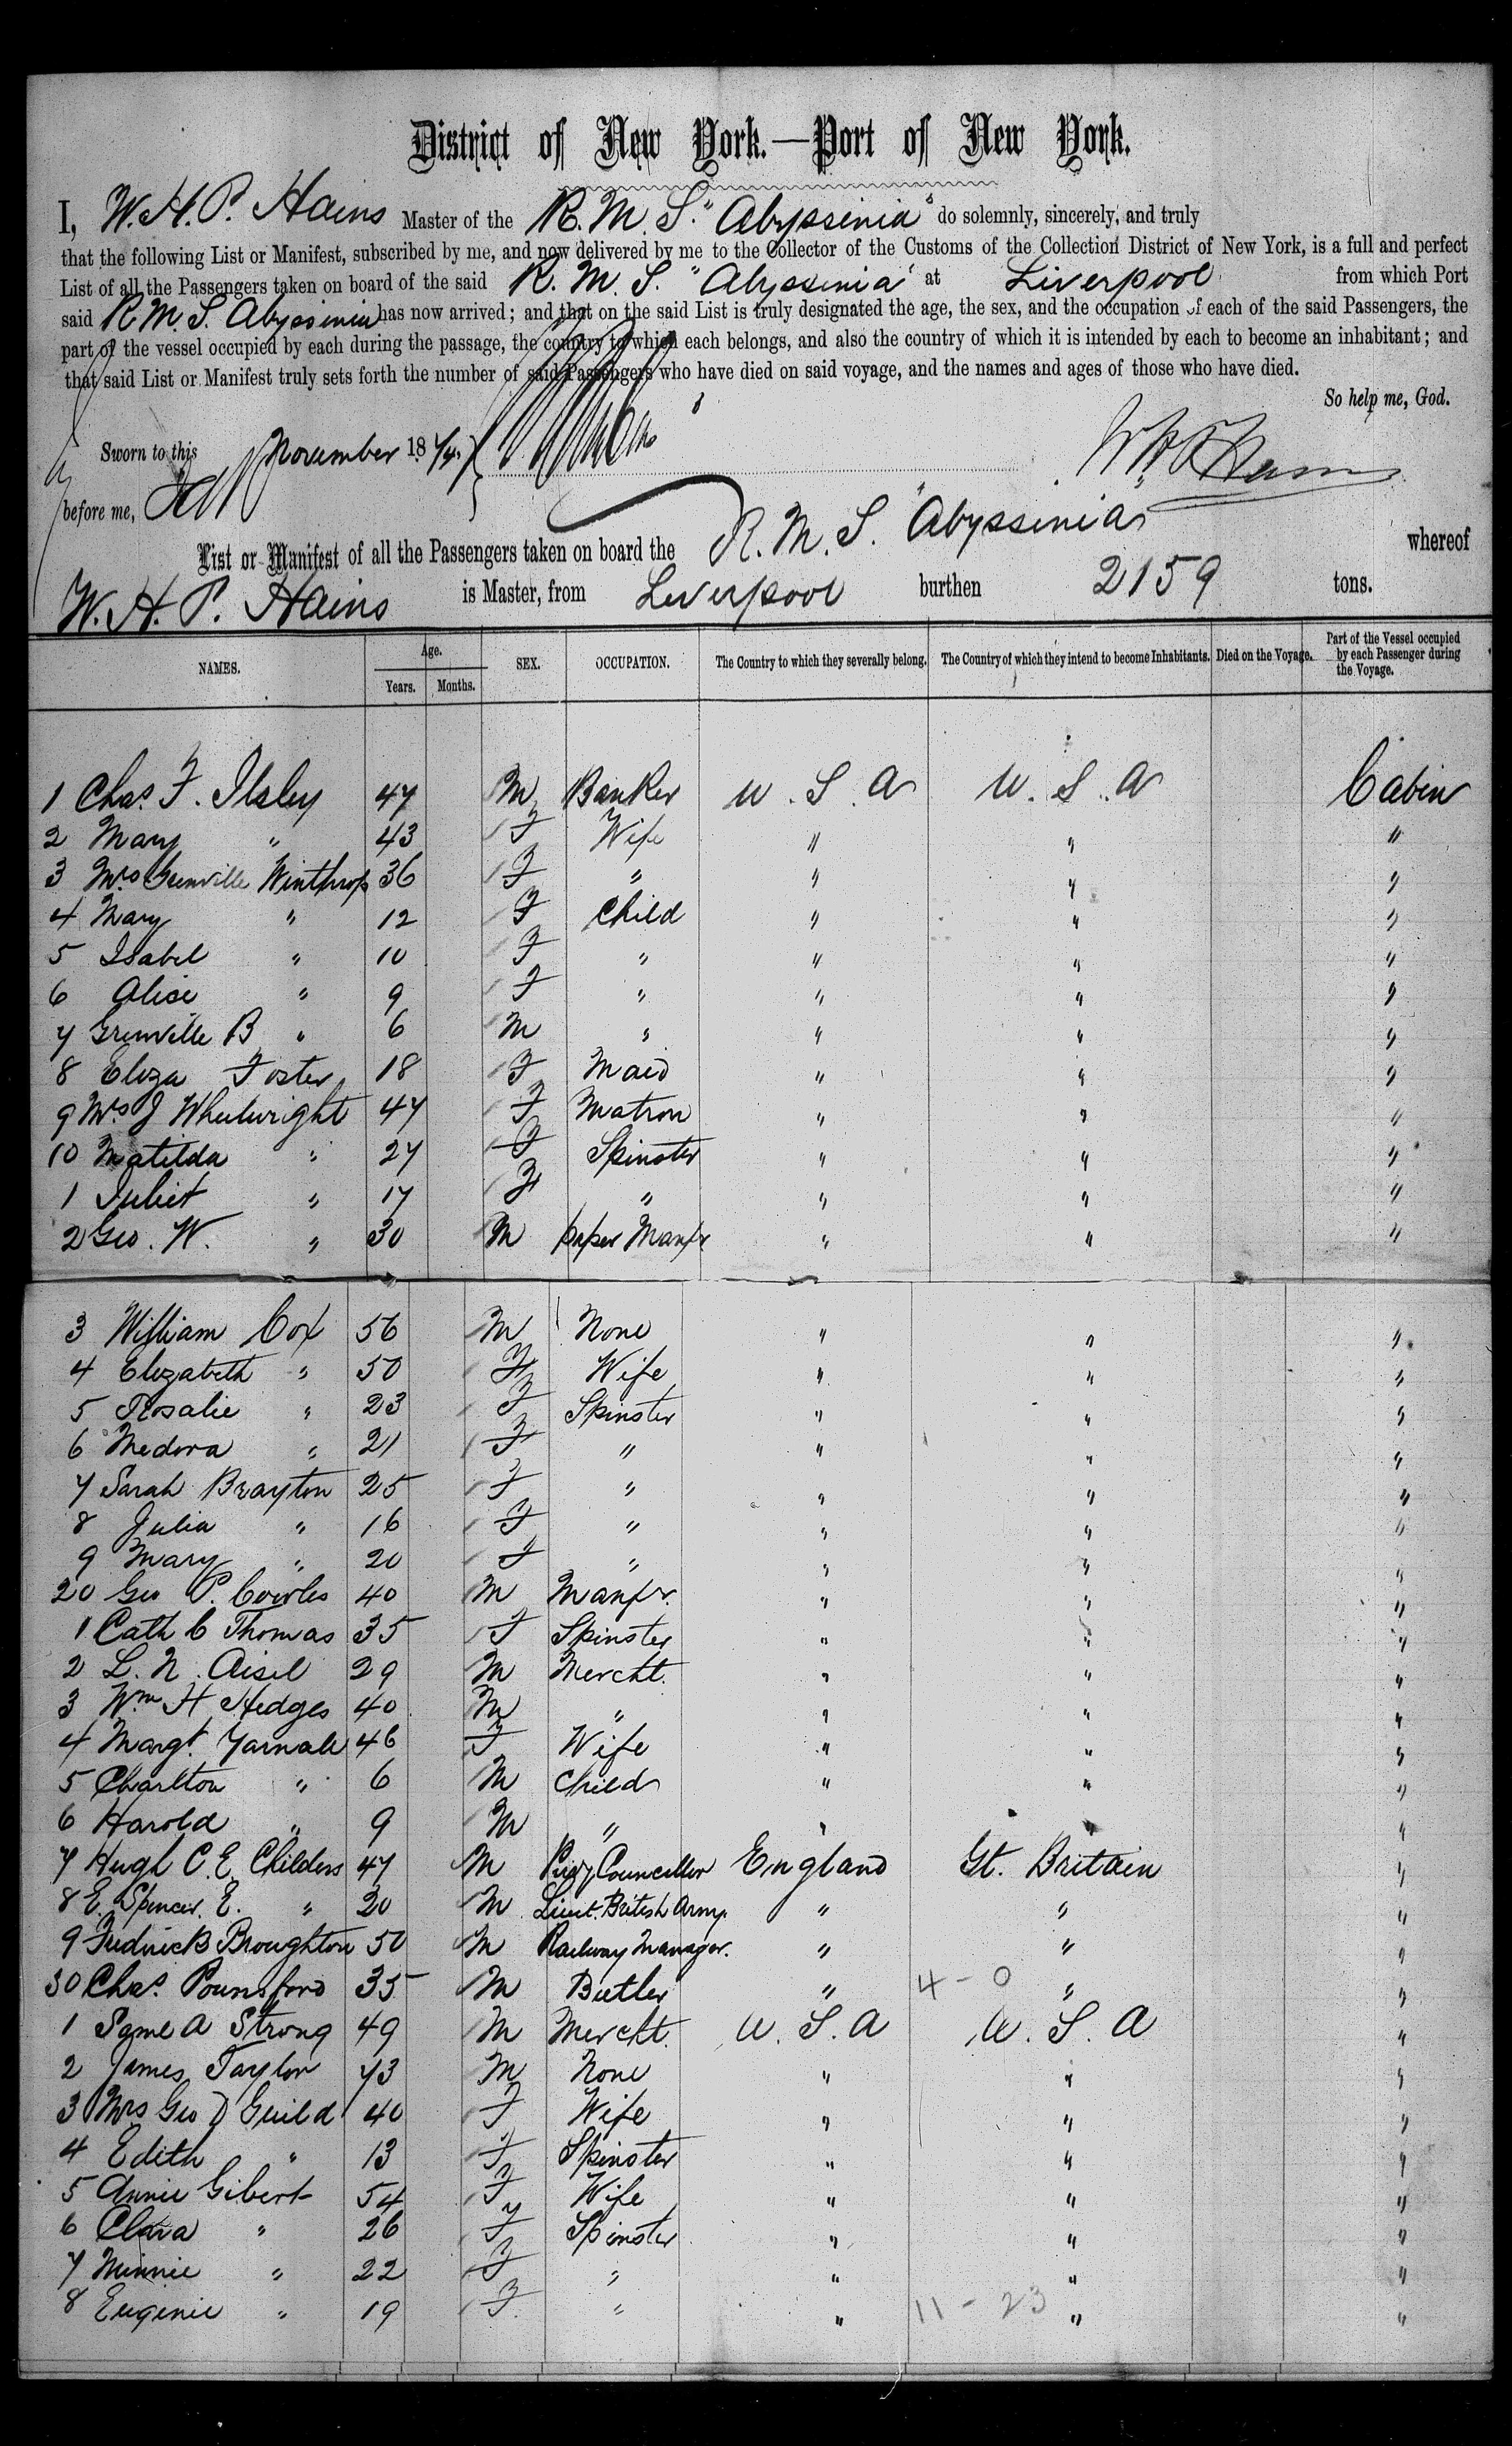 District of New York.—Port of New York.
I, W. H. P. Hains Master of the R. M. S. "Abyssinia" do solemnly, sincerely, and truly
that the following List or Manifest, subscribed by me, and now delivered by me to the Collector of the Customs of the Collection District of New York, is a full and perfect
List of all the Passengers taken on board of the said R. M. S. "Abyssinia" at Liverpool from which Port
said R M. S. Abyssinia has now arrived; and that on the said List is truly designated the age, the sex, and the occupation of each of the said Passengers, the
part of the vessel occupied by each during the passage, the country to which each belongs, and also the country of which it is intended by each to become an inhabitant; and
that said List or Manifest truly sets forth the number of said Passengers who have died on said voyage, and the names and ages of those who have died.
So help me, God.
Sworn to this November 1874
before me,
List or Manifest of all the Passengers taken on board the R. M. S. "Abyssinia" whereof
W. H. P. Hains is Master, from Liverpool burthen 2159 tons.
NAMES. Age. Years. Months. SEX. OCCUPATION. The Country to which they severally belong. The Country of which they intend to become Inhabitants. Died on the Voyage. Part of the Vessel occupied by each Passenger during the Voyage.
1 Chas. F. Ilsley 47 M Banker U. S. A U. S. A Cabin
2 Mary " 43 F Wife " " "
3 Mrs Grenville Winthrop 36 F " " " "
4 Mary " 12 F Child " " "
5 Isabel " 10 F " " " "
6 Alice " 9 F " " " "
7 Grenville B " 6 M " " " "
8 Eliza Foster 18 F Maid " " "
9 Mrs J Wheelwright 47 F Matron " " "
10 Matilda " 27 F Spinster " " "
1 Juliet " 17 F " " " "
2 Geo. W. " 30 M paper Manfr " " "
3 William Cox 56 M None " " "
4 Elizabeth " 50 F Wife " " "
5 Rosalie " 23 F Spinster " " "
6 Medora " 21 F " " " "
7 Sarah Brayton 25 F " " " "
8 Julia " 16 F " " " "
9 Mary " 20 F " " " "
20 Geo P. Cowles 40 M Manfr. " " "
1 Cath C Thomas 35 F Spinster " " "
2 L. N. Aisel 29 M Mercht. " " "
3 Wm H Hedges 40 M " " " "
4 Margt. Yarnall 46 F Wife " " "
5 Charlton " 6 M Child " " "
6 Harold " 9 M " " "
7 Hugh C. E. Childers 47 M Privy Councillor England Gt. Britain "
8 E. Spencer. E. " 20 M Lieut. British Army. " " "
9 Fredrick Broughton 50 M Railway Manager. " " "
30 Chas. Pounsford 35 M Butler " 4 - 0 " "
1 Saml A Strong 49 M Mercht. U. S. A U. S. A "
2 James Taylor 43 M None " " "
3 Mrs Geo D Guild 40 F Wife " " "
4 Edith " 13 F Spinster " " "
5 Annie Gibert 54 F Wife " " "
6 Clara " 26 F Spinster " " "
7 Minnie " 22 F " " " "
8 Eugenie " 19 F. " " 11 - 23 " "